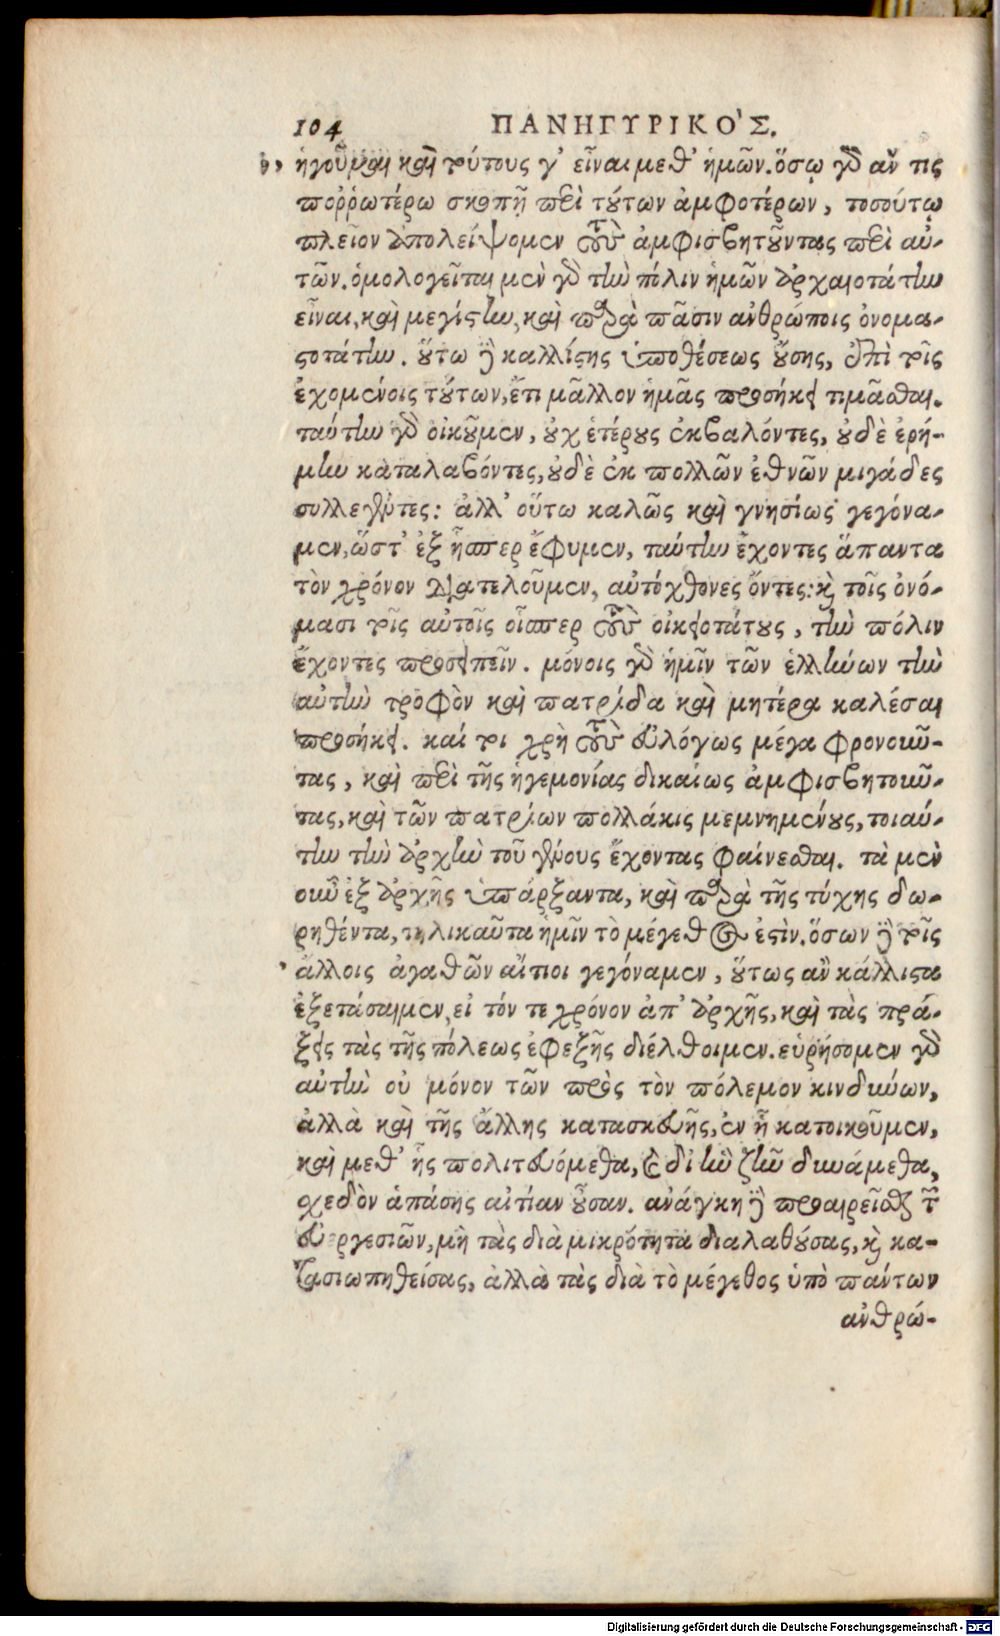 104 ΠΑΝΗΓΥΡΙΚΟ'Σ.
ἡγοῦμαι καὶ τούτους γ' εἶναι μεθ' ἡμῶν. ὅσῳ γὰρ ἄν τις
ποῤῥωτέρω σκοπῇ περὶ τούτων ἀμφοτέρων, τοσούτῳ
πλεῖον ἀπολείψομεν τοὺς ἀμφισβητοῦντας περὶ αὐ-
τῶν. ὁμολογεῖται μὲν γὰρ τὴν πόλιν ἡμῶν ἀρχαιοτάτην
εἶναι, καὶ μεγίστην, καὶ παρὰ πᾶσιν ἀνθρώποις ὀνομα-
στοτάτην. οὕτω δὲ καλλίστης ὑποθέσεως οὔσης, ἐπὶ τοῖς
ἐχομένοις τούτων, ἔτι μᾶλλον ἡμᾶς προσήκει τιμᾶσθαι.
ταύτην γὰρ οἰκοῦμεν, οὐχ ἑτέρους ἐκβαλόντες, οὐδὲ ἐρή-
μην καταλαβόντες, οὐδὲ ἐκ πολλῶν ἐθνῶν μιγάδες
συλλεγέντες: ἀλλ' οὕτω καλῶς καὶ γνησίως γεγόνα-
μεν, ὥστ' ἐξ ἧσπερ ἔφυμεν, ταύτην ἔχοντες ἅπαντα
τὸν χρόνον διατελοῦμεν, αὐτόχθονες ὄντες: καὶ τοῖς ὀνό-
μασι τοῖς αὐτοῖς οἷσπερ τοὺς οἰκειοτάτους, τὴν πόλιν
ἔχοντες προσειπεῖν. μόνοις γὰρ ἡμῖν τῶν ἑλλήνων τὴν
αὐτὴν τροφὸν καὶ πατρίδα καὶ μητέρα καλέσαι
προσήκει. καί τοι χρὴ τοὺς εὐλόγως μέγα φρονοῦν-
τας, καὶ περὶ τῆς ἡγεμονίας δικαίως ἀμφισβητοῦν-
τας, καὶ τῶν πατρίων πολλάκις μεμνημένους, τοιαύ-
την τὴν ἀρχὴν τοῦ γένους ἔχοντας φαίνεσθαι. τὰ μὲν
οὖν ἐξ ἀρχῆς ὑπάρξαντα, καὶ παρὰ τῆς τύχης δω-
ρηθέντα, τηλικαῦτα ἡμῖν τὸ μέγεθός ἐστίν. ὅσων δὲ τοῖς
ἄλλοις ἀγαθῶν αἴτιοι γεγόναμεν, οὕτως ἂν κάλλιστα
ἐξετάσαιμεν, εἰ τόν τε χρόνον ἀπ' ἀρχῆς, καὶ τὰς πρά-
ξεις τὰς τῆς πόλεως ἐφεξῆς διέλθοιμεν. εὑρήσομεν γὰρ
αὐτὴν οὐ μόνον τῶν πρὸς τὸν πόλεμον κινδύνων,
ἀλλὰ καὶ τῆς ἄλλης κατασκευῆς, ἐν ᾗ κατοικοῦμεν,
καὶ μεθ' ἧς πολιτευόμεθα, καὶ δι' ἣν ζῆν δυνάμεθα,
σχεδὸν ἁπάσης αἰτίαν οὖσαν. ἀνάγκη δὲ προαιρεῖσθαι τῶν
εὐεργεσιῶν, μὴ τὰς διὰ μικρότητα διαλαθούσας, καὶ κα-
τασιωπηθείσας, ἀλλὰ τὰς διὰ τὸ μέγεθος ὑπὸ πάντων
ἀνθρώ-
Digitalisierung gefördert durch die Deutsche Forschungsgemeinschaft - DFG